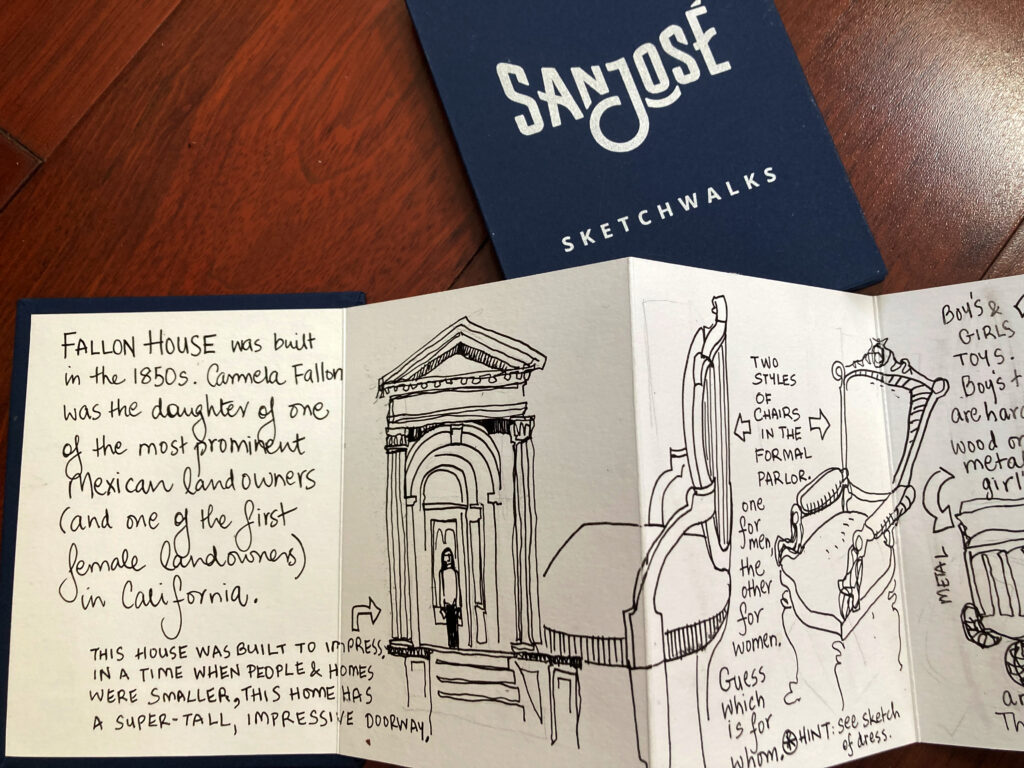 SANJOSÉ
SKETCHWALKS
FALLON HOUSE was built
in the 1850s. Carmela Fallon
was the daughter of one
of the most prominent
Mexican landowners
(and one of the first
female landowners)
in California.
THIS HOUSE WAS BUILT TO IMPRESS.
IN A TIME WHEN PEOPLE & HOMES
WERE SMALLER, THIS HOME HAS
A SUPER-TALL, IMPRESSIVE DOORWAY.
TWO
STYLES
OF
CHAIRS
IN THE
FORMAL
PARLOR.
one
for
men,
the
other
for
women.
Guess
which
is for
whom.
HINT: see sketch
of dress.
BOY'S &
GIRLS
TOYS.
Boy's
are
wood
metal
girl
METAL